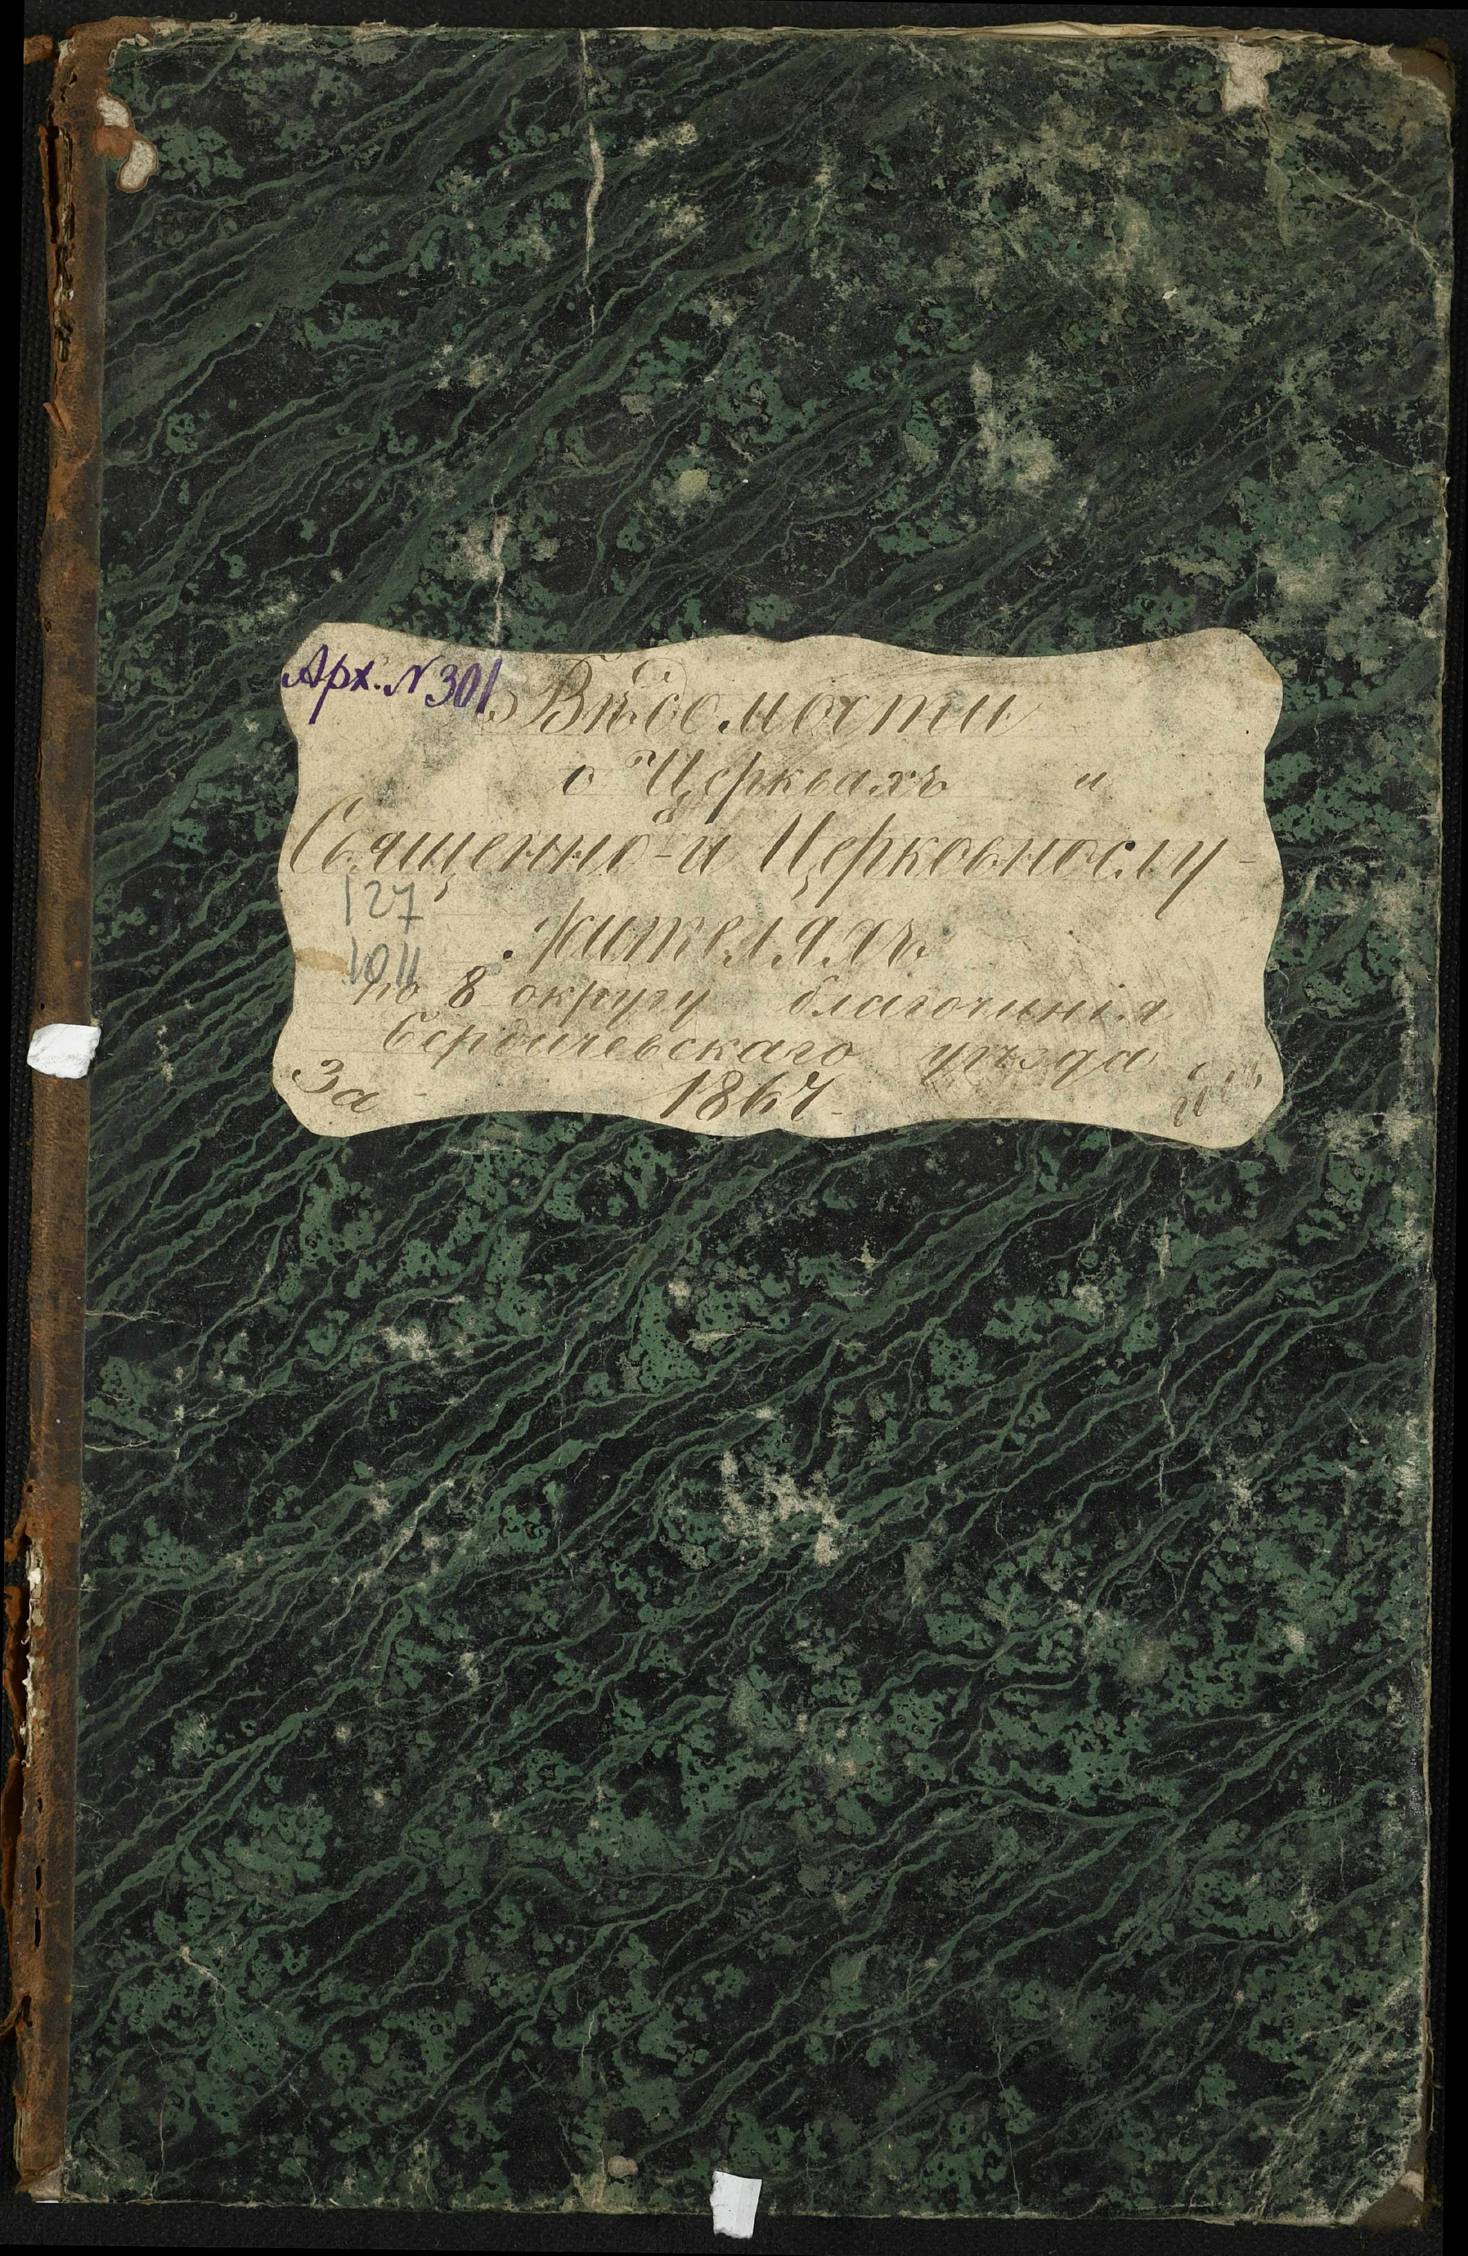 Арх. N 301
Вѣдомости
о Церквахъ и
Священно-и Церковнослу-
жителяхъ
127
1011
по 8 округу благочинія
Бердичевскаго уѣзда
За 1867 годъ